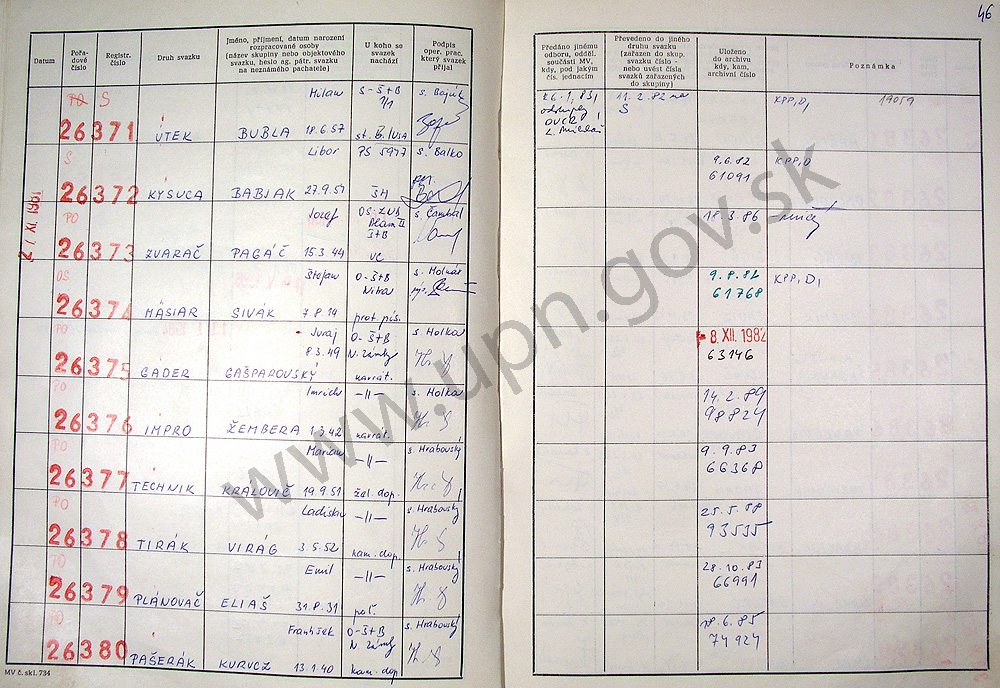 46
Datum
Pořadové číslo
Registr. číslo
Druh svazku
Jméno, příjmení, datum narození rozpracované osoby (název skupiny nebo objektového svazku, heslo ag. pátr. svazku na neznámého pachatele)
U koho se svazek nachází
Podpis oper. prac. který svazek přijal
Předáno jinému odboru, odděl. součásti MV, kdy, pod jakým čís. jednacím
Převedeno do jiného druhu svazku (zařazen do skup. svazku číslo - nebo uvést čísla svazků zařazených do skupiny)
Uloženo do archivu kdy, kam, archivní číslo
Poznámka
PO S
26371 ÚTEK BUBLA Milan 18.6.57
S-Š+B
11.2.82 na S
KPP,D,
19059
S
26372 KYSUCA BABJAK Libor 27.9.57 PS 5977 ŠH s. Balko
9.6.82
61091
KPP,D
PO
26373 ZVARAČ PAGÁČ Jozef 15.3.44
VC
s. Čambál
18.3.86
OS
26374 MÁSIAR SIVÁK Štefan 7.8.19
O-Š+B
Nitra
prot. pís.
s. Molnár
9.8.82
61768
KPP,D,
PO
26375 GADER GAŠPAROVSKÝ Juraj 8.3.49
O-Š+B
N. Zámky
navrát.
s. Holka
8. XII. 1982
63146
PO
26376 IMPRO ŽEMBERA Imrich 1.3.42
-||-
navrát.
s. Holka
14.2.89
98824
PO
26377 TECHNIK KRALOVIČ Marian 19.9.51
-||-
žel. dop.
s. Hrabovský
9.9.83
66368
PO
26378 TIRÁK VIRÁG Ladislav 3.5.52
-||-
kam. dop.
s. Hrabovský
25.5.88
93535
PO
26379 PLÁNOVAČ ELIÁŠ Emil 31.8.31
-||-
poľ.
s. Hrabovský
28.10.83
66991
PO
26380 PAŠERÁK KURUCZ František 13.1.40
O-Š+B
N. Zámky
kam. dop
s. Hrabovský
18.6.85
74924
MV č. skl. 734
www.upn.gov.sk